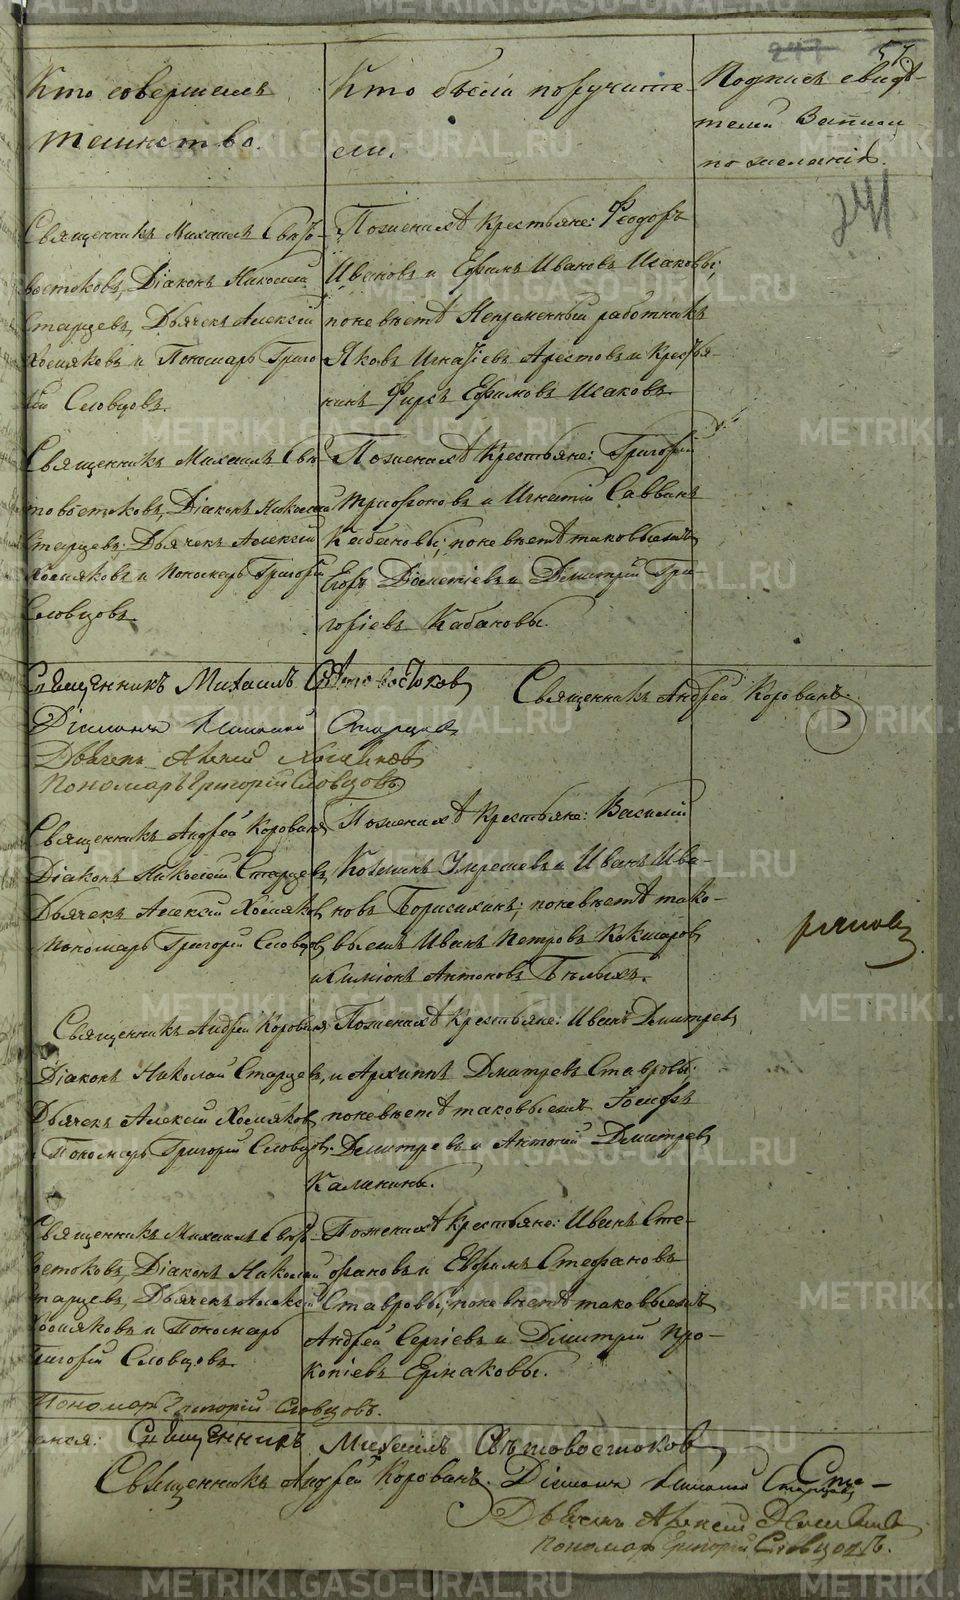 57.
Кто совершалъ
таинство.
Кто были поручите-
ли.
Подпись свидѣ-
телей записи
по желанію.
241
Священникъ Михаилъ Свѣто-
востоковъ, Діаконъ Николай
Старцевъ, Дьячекъ Алексѣй
Хомяковъ и Пономарь Григо-
рій Словцовъ.
По женихѣ крестьяне: Ѳеодоръ
Ивановъ и Ефимъ Ивановъ Исаковы;
по невѣстѣ Непременный работникъ
Яковъ Игнатьевъ Арестовъ и Крестья-
нинъ Фирсъ Ефимовъ Исаковъ.
Священникъ Михаилъ Свѣ-
товостоковъ, Діаконъ Николай
Старцевъ, Дьячекъ Алексѣй
Хомяковъ и Пономарь Григорій
Словцовъ.
По женихѣ крестьяне: Григорій
Трифоновъ и Игнатій Саввинъ
Кабановы; по невѣстѣ таковыежъ
Егоръ Дометіевъ и Димитрій Гри-
горіевъ Кабановы.
Священникъ Михаилъ Свѣтовостоковъ
Священникъ Андрей Корованъ.
Діаконъ Николай Старцевъ
Дьячекъ Алексей Хомяковъ
Пономарь Григорій Словцовъ
Священникъ Андрей Корованъ
Діаконъ Николай Старцевъ,
Дьячекъ Алексѣй Хомяковъ
Пономарь Григорій Словцовъ
По женихѣ крестьяне: Василій
Козминъ и Иванъ Ива-
новъ Борисихинъ; по невѣстѣ тако-
выежъ Иванъ Петровъ Кокшаровъ
и Симіонъ Антоновъ Бѣлыхъ.
Священникъ Андрей Корованъ
Діаконъ Николай Старцевъ,
Дьячекъ Алексѣй Хомяковъ
Пономарь Григорій Словцовъ.
По женихѣ крестьяне: Иванъ Дмитревъ
и Архиппъ Дмитревъ Ставровы.
по невѣстѣ таковыежъ Іосифъ
Димитревъ и Антоній Дмитревъ
Калинины.
Священникъ Михаилъ Свѣто-
востоковъ, Діаконъ Николай
Старцевъ, Дьячекъ Алексѣй
Хомяковъ и Пономарь
Григорій Словцовъ.
По женихѣ крестьяне: Иванъ Сте-
фановъ и Евфимъ Стефановъ
Ставровы, по невѣстѣ таковыежъ
Андрей Сергіевъ и Димитрій Про-
копіевъ Ермаковы.
Пономарь Григорій Словцовъ.
Священникъ Михаилъ Свѣтовостоковъ
Священникъ Андрей Корованъ. Діаконъ Николай Старцевъ
Дьячекъ Алексей Хомяковъ
Пономарь Григорій Словцовъ.
METRIKI.GASO-URAL.RU